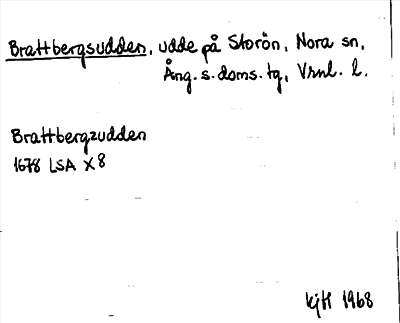 Brattbergsudden, udde på Storön, Nora sn,
Ång. s. doms. tg, Vrnl. l.
Brattbergzudden
1678 LSA X8
kjH 1968